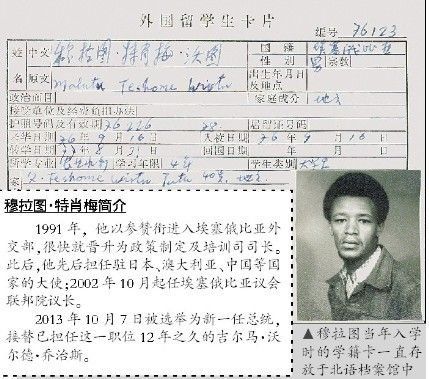 外国留学生卡片
编号 76123
姓 中文 穆拉图·特肖梅·沃图 国籍 埃塞俄比亚
性别 男 宗教
名 原文 Mulatu Teshome Wirtu 出生年月日及地点
政治面目 家庭成分 地主
接受单位及经费负担办法
护照号码及有效期 居留证号码
来华日期 入校日期 76年9月16日
转学日期 8月31日 回国日期 年 月 日
所学专业 学习年限 4年 学生类别 大学生
Teshome Wirtu 40岁, 地主
穆拉图·特肖梅简介
1991年,他以参赞衔进入埃塞俄比亚外
交部,很快就晋升为政策制定及培训司司长。
此后,他先后担任驻日本、澳大利亚、中国等国
家的大使;2002年10月起任埃塞俄比亚议会
联邦院议长。
2013年10月7日被选举为新一任总统,
接替已担任这一职位12年之久的吉尔马·沃
尔德·乔治斯。
▲穆拉图当年入学
时的学籍卡一直存
放于北语档案馆中